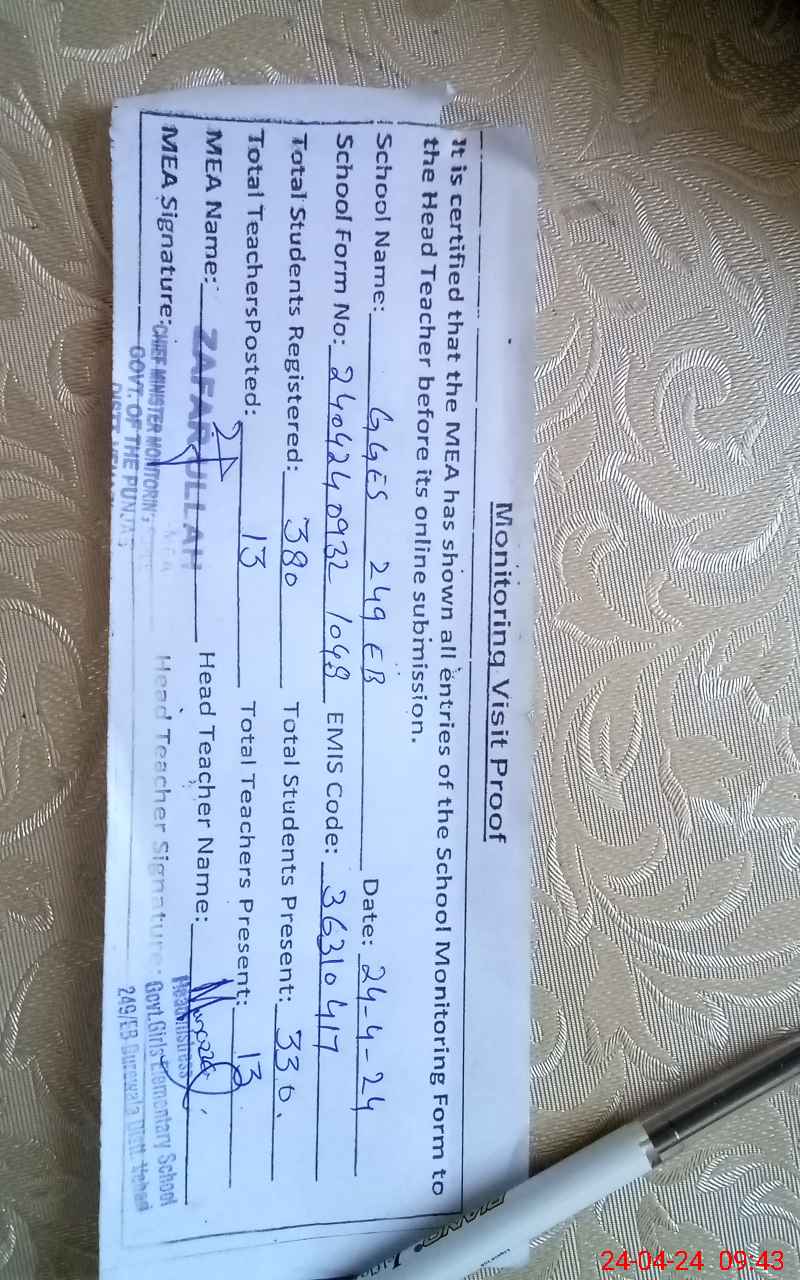 Monitoring Visit Proof
It is certified that the MEA has shown all entries of the School Monitoring Form to
the Head Teacher before its online submission.
School Name: GGES 249 EB Date: 24-4-24
School Form No: 240424 0932 1048 EMIS Code: 36310417
Total Students Registered: 380 Total Students Present: 336.
Total TeachersPosted: 13 Total Teachers Present: 13
MEA Name: ZAFAR ULLAH Head Teacher Name:
MEA Signature: Head Teacher Signature:
CHIEF MINISTER MONITORING
GOVT. OF THE PUNJAB
Headmistress
Govt. Girls Elementary School
249/EB Burewala Distt. Vehari
PIANO
24-04-24 09:43